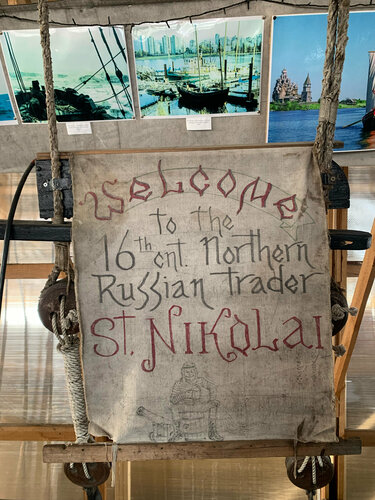 Welcome
to the
16th cnt. Northern
Russian trader
St. Nikolai